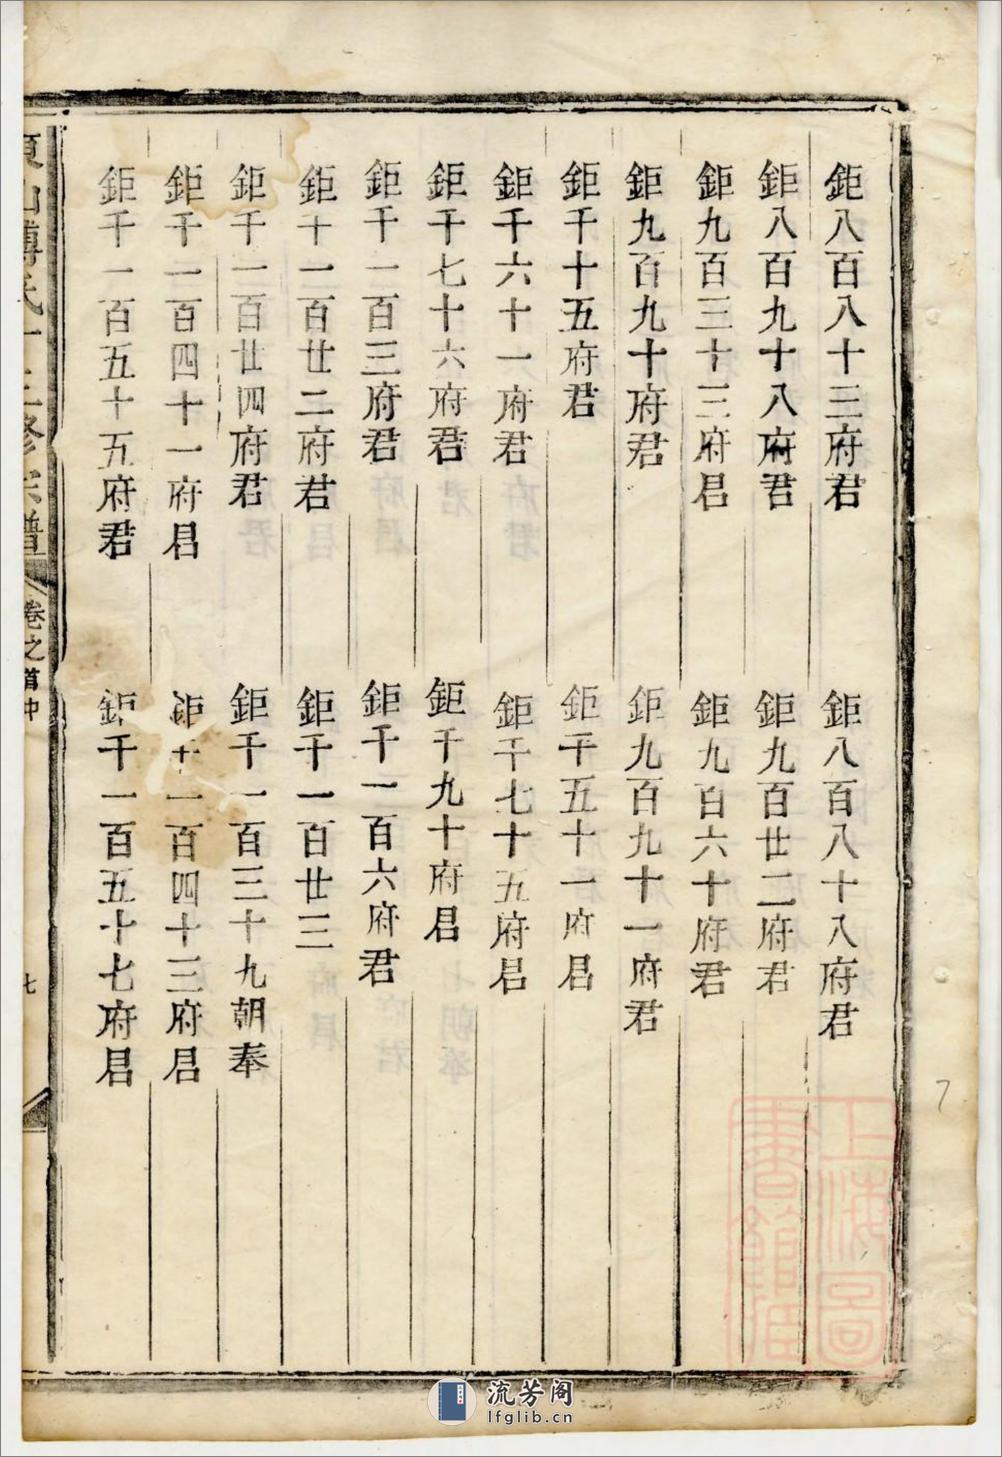 鉅八百八十三府君
鉅八百八十八府君
鉅八百九十八府君
鉅九百廿二府君
鉅九百三十三府君
鉅九百六十府君
鉅九百九十府君
鉅九百九十一府君
鉅千十五府君
鉅千五十一府君
鉅千六十一府君
鉅千七十五府君
鉅千七十六府君
鉅千九十府君
鉅千一百三府君
鉅千一百六府君
鉅千一百廿二府君
鉅千一百廿三
鉅千一百廿四府君
鉅千一百三十九朝奉
鉅千一百四十一府君
鉅千一百四十三府君
鉅千一百五十五府君
鉅千一百五十七府君
氏十三修宗譜
卷之首中
七
上海圖
書館藏
7
流芳阁
lfglib.cn